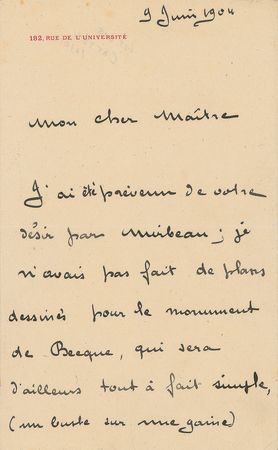 9 Juin 1904
182, RUE DE L'UNIVERSITÉ
Mon cher Maître
J'ai été prévenu de votre
désir par Mirbeau ; je
n'avais pas fait de plans
dessinés pour le monument
de Becque, qui sera
d'ailleurs tout à fait simple,
(un buste sur une gaine)